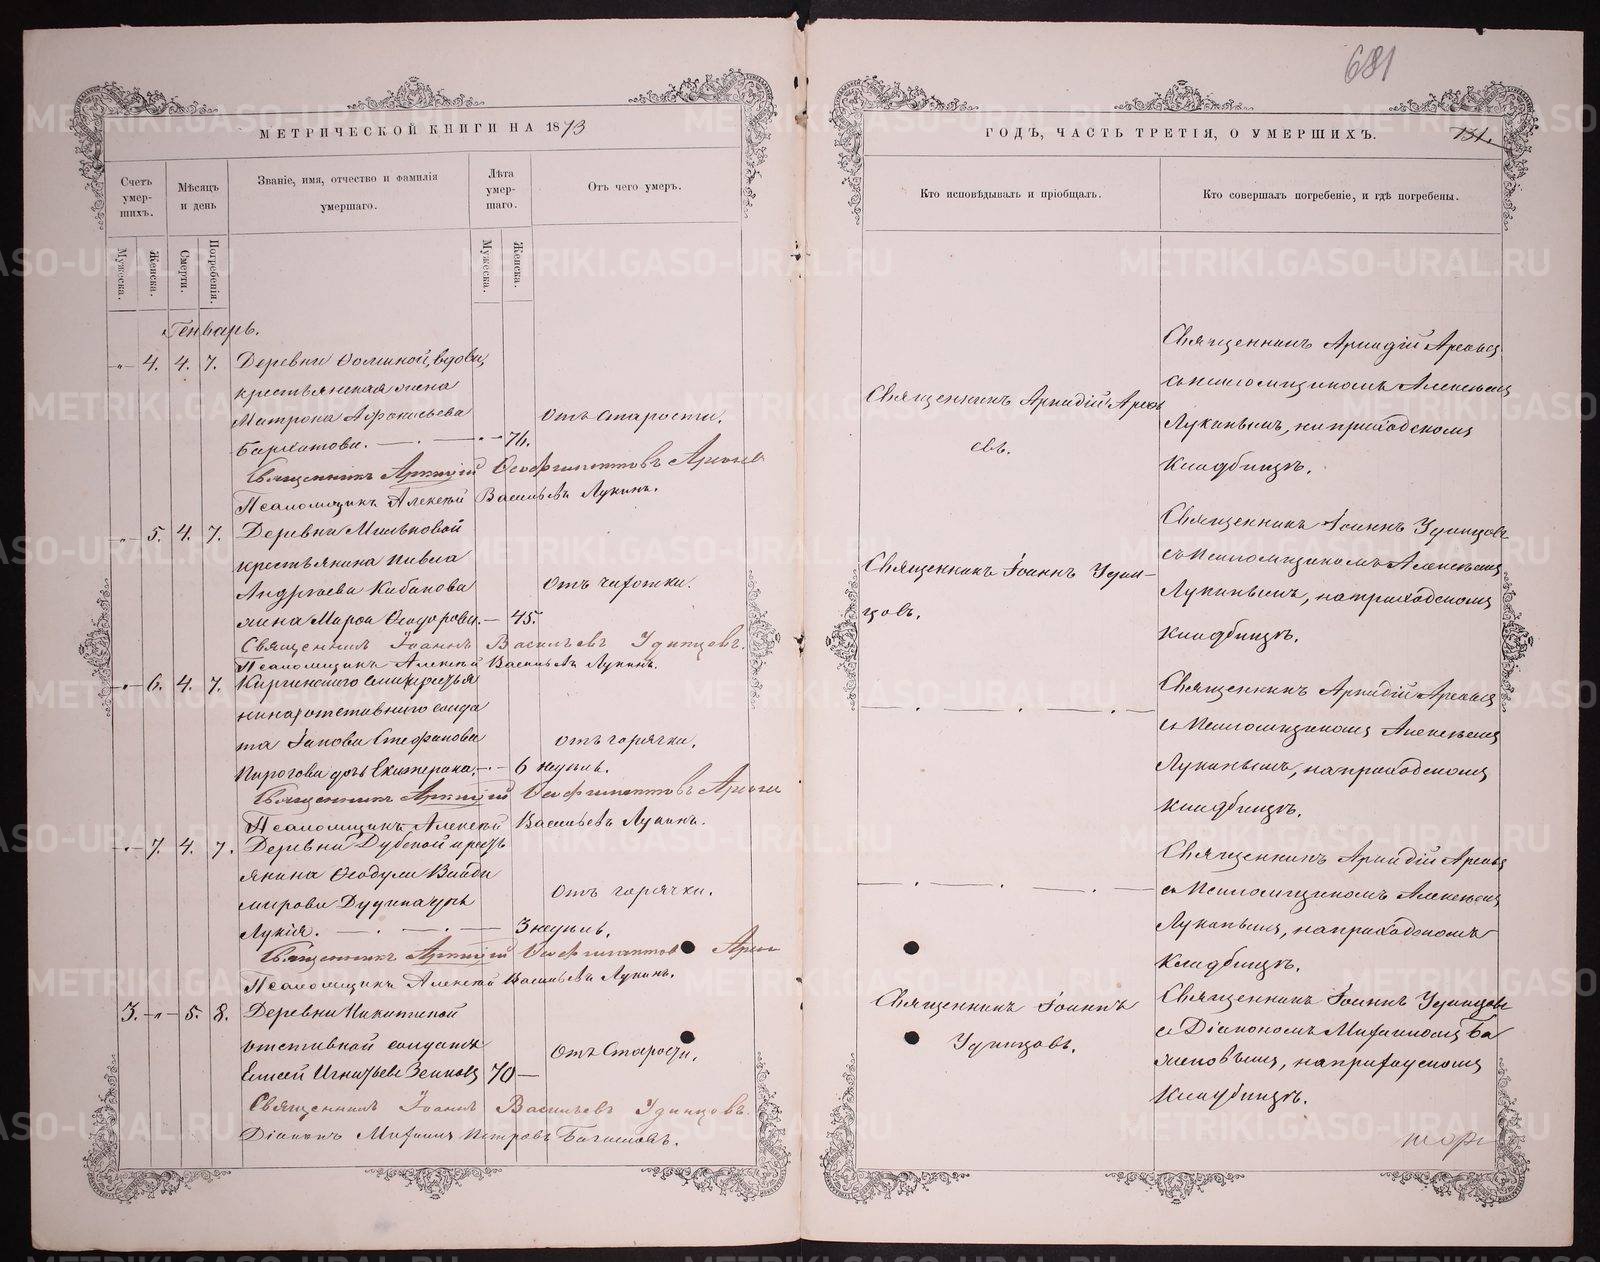 МЕТРИЧЕСКОЙ КНИГИ НА 1873
Счетъ умер-шихъ.
Мужеска.
Женска.
Мѣсяцъ и день
Смерти.
Погребенія.
Званіе, имя, отчество и фамилія
умершаго.
Лѣта умер-шаго.
Мужеска.
Женска.
Отъ чего умеръ.
Генварь.
-"- 4. 4. 7. Деревни Ѳоминой, вдова
крестьянская жена
Матрона Аѳонасьева
Бархатова. — 76.
Отъ старости.
Священникъ Аркадій
Псаломщикъ Алексѣй Васильевъ Лукинъ.
-"- 5. 4. 7. Деревни Мильковой
крестьянина Павла
Андреева Кабакова
жена Марѳа Ѳеодорова. — 45.
Отъ чахотки.
Священникъ Іоаннъ Васильевъ Удинцовъ.
Псаломщикъ Алексѣй Васильевъ Лукинъ.
-"- 6. 4. 7. Киргинскаго
отставнаго солда
та Іакова Стефанова
Пирогова дочь Екатерина. — 6 недѣль.
Отъ горячки.
Священникъ Аркадій
Псаломщикъ Алексѣй Васильевъ Лукинъ.
-"- 7. 4. 7. Деревни Дубской кресть
янина Ѳеодула
мирова дочь
Лукія. — 3 недѣль.
Отъ горячки.
Священникъ Аркадій
Псаломщикъ Алексѣй Васильевъ Лукинъ.
3. -"- 5. 8. Деревни Никитиной
отставной солдатъ
Елисей Игнатьевъ 70 —
Отъ Старости.
Священникъ Іоаннъ Васильевъ Удинцовъ.
Діаконъ Михаилъ Петровъ
681
ГОДЪ, ЧАСТЬ ТРЕТІЯ, О УМЕРШИХЪ.
131.
Кто исповѣдывалъ и пріобщалъ.
Кто совершалъ погребеніе, и гдѣ погребены.
Священникъ Аркадій
евъ.
Священникъ Аркадій
съ псаломщикомъ Алексѣемъ
Лукинымъ, на приходскомъ
кладбищѣ.
Священникъ Іоаннъ Удин-
цовъ.
Священникъ Іоаннъ Удинцовъ
съ Псаломщикомъ Алексѣемъ
Лукинымъ, на приходскомъ
кладбищѣ.
Священникъ Аркадій
съ Псаломщикомъ Алексѣемъ
Лукинымъ, на приходскомъ
кладбищѣ.
Священникъ Аркадій
съ Псаломщикомъ Алексѣемъ
Лукинымъ, на приходскомъ
Кладбищѣ.
Священникъ Іоаннъ
Удинцовъ.
Священникъ Іоаннъ Удинцовъ
съ Діакономъ Михаиломъ Ба
женовымъ, на приходскомъ
Кладбищѣ.
METRIKI.GASO-URAL.RU